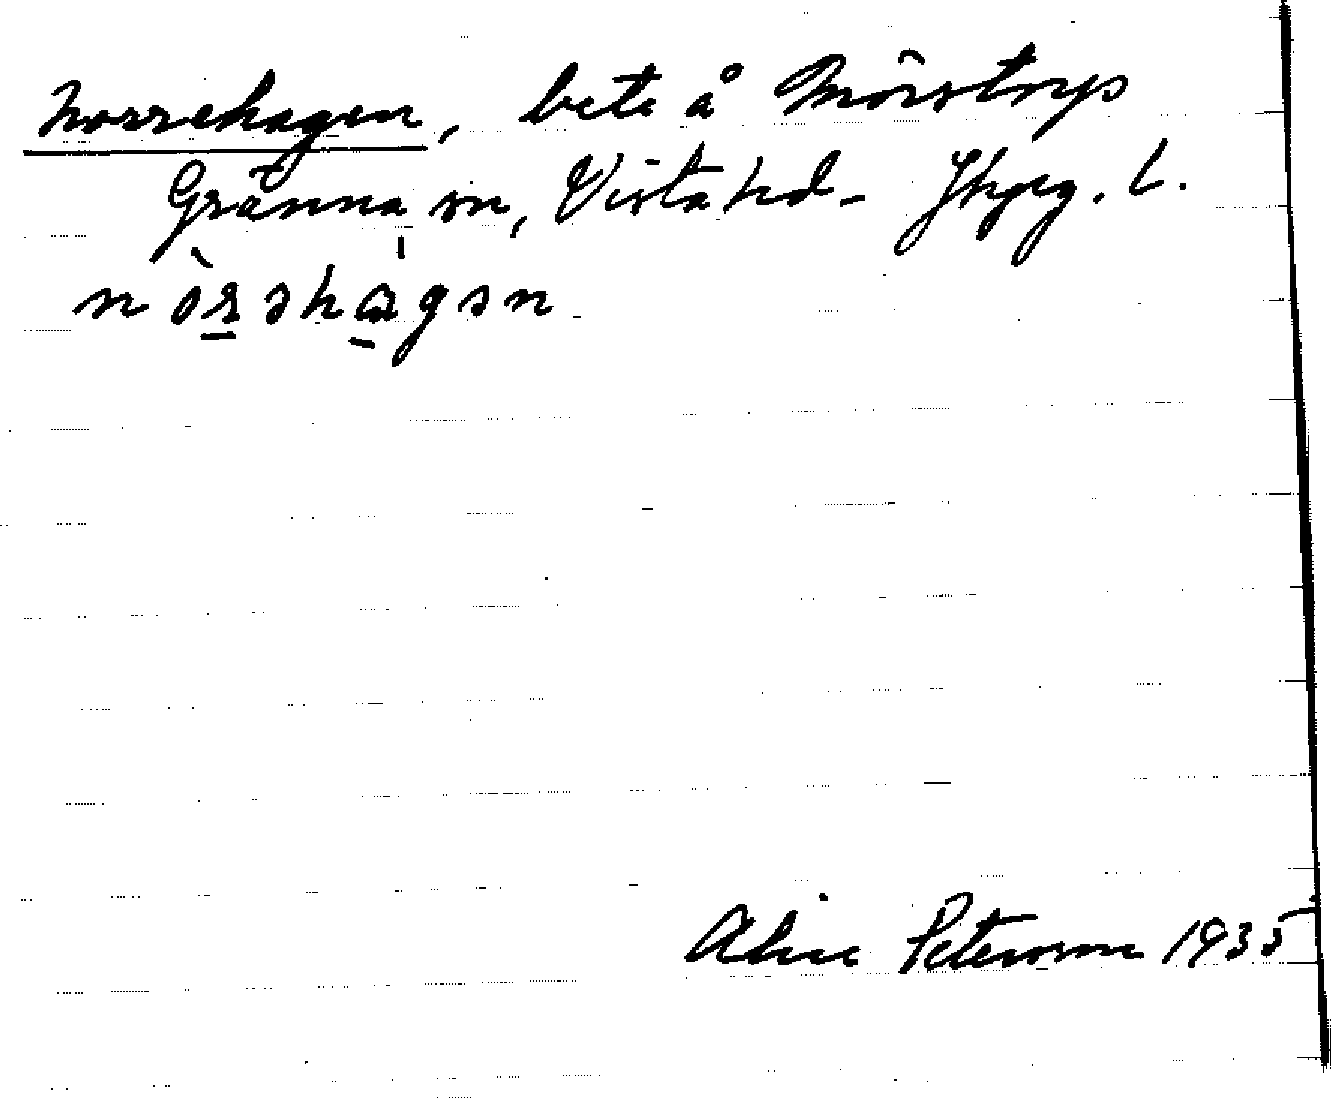 Norrehagen, bete å Mörstorp
Gränna sn, Vista hd. Jkpg. l.
nòrəhàgən
Alice Peterson 1935